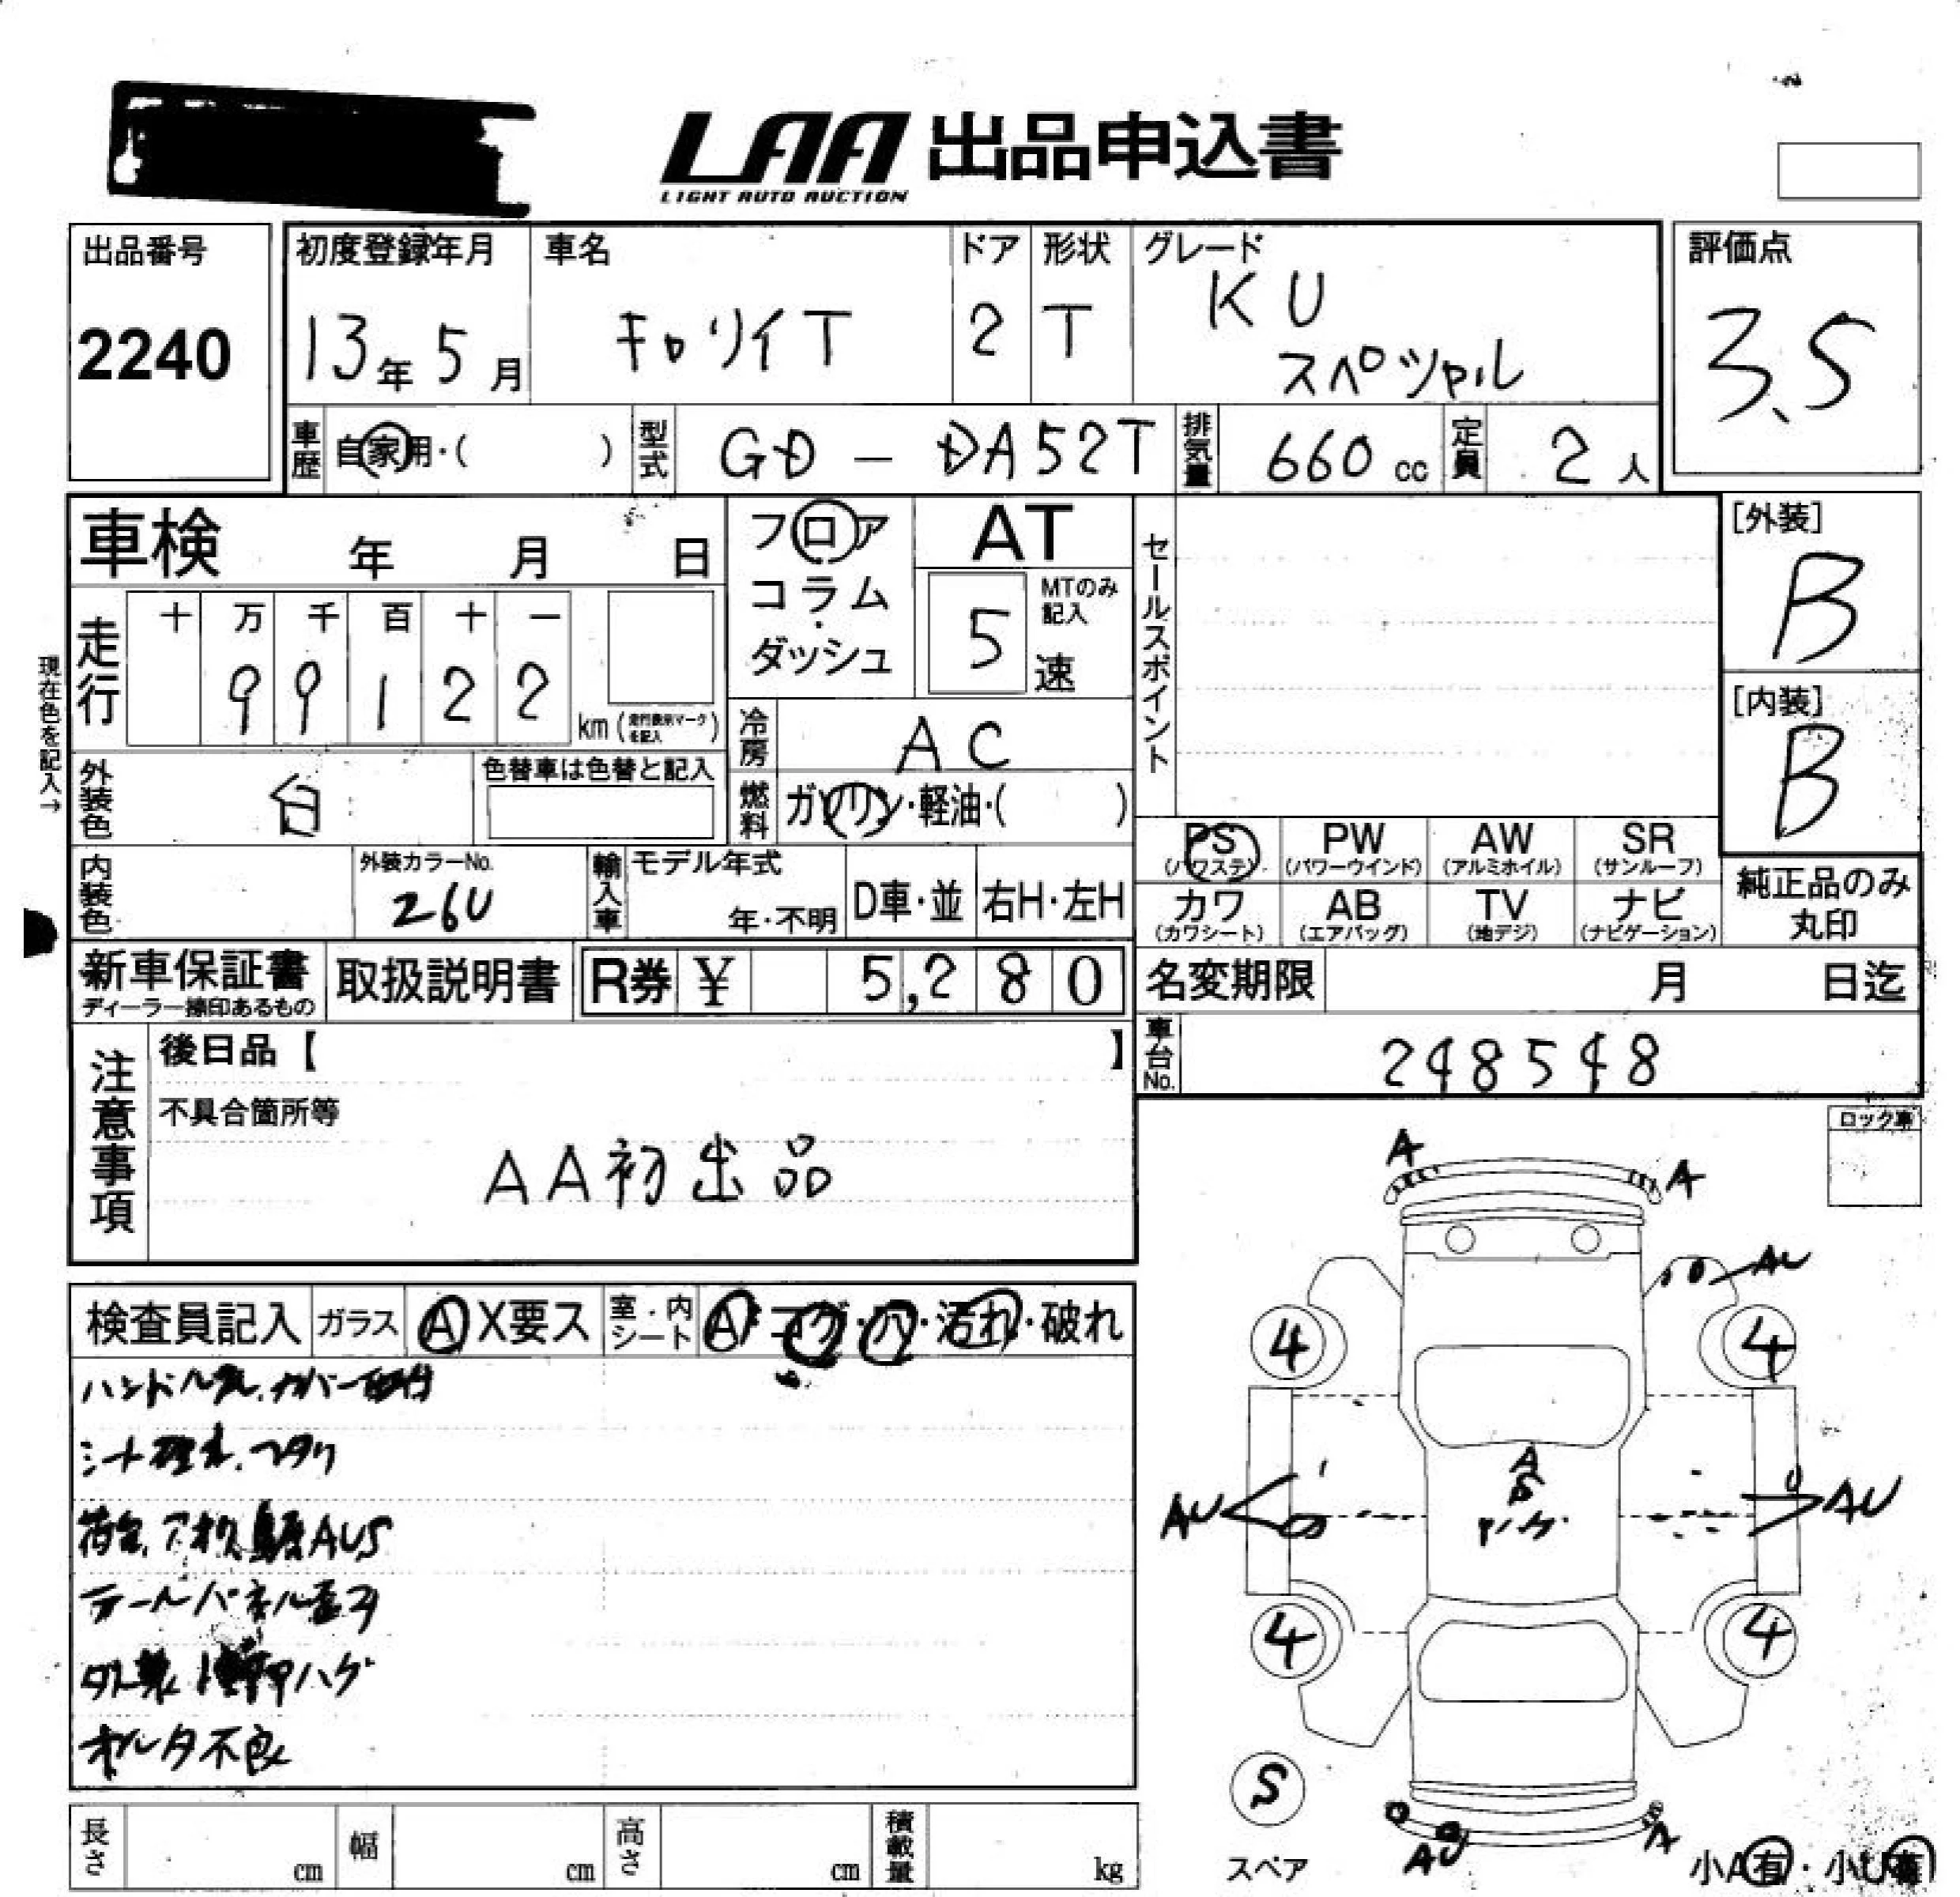 LAA 出品申込書
LIGHT AUTO AUCTION
出品番号
2240
初度登録年月
13年5月
車名
キャリイT
ドア
2
形状
T
グレード
KU
スペツャル
評価点
3.5
車歴
自家用・( )
型式
GD - DA52T
排気量
660 cc
定員
2 人
車検 年 月 日
フロア
コラム
ダッシュ
AT
5
MTのみ
記入
速
セールスポイント
[外装]
B
[内装]
B
現在色を記入→
走行
十 万 千 百 十 一
9 9 1 2 2
km (走行表示マークを記入)
冷房
AC
外装色
白
色替車は色替と記入
燃料
ガソリン・軽油・( )
PS
(パワステ)
PW
(パワーウインド)
AW
(アルミホイル)
SR
(サンルーフ)
カワ
(カワシート)
AB
(エアバッグ)
TV
(地デジ)
ナビ
(ナビゲーション)
純正品のみ
丸印
内装色
外装カラーNo.
26U
輸入車
モデル年式
年・不明
D車・並
右H・左H
新車保証書
ディーラー捺印あるもの
取扱説明書
R券 ¥ 5,280
名変期限 月 日迄
車台No.
248548
注意事項
後日品【 】
不具合箇所等
AA初出品
ロック車
検査員記入
ガラス
A X要ス
室・内
シート
A コゲ・穴・汚れ・破れ
カバー
AUS
テールパネル
ハゲ
オルタ不良
A
A
AU
4
4
A
S
AU
AU
4
4
S
スペア
AU
A
小A有・小U有
長さ cm
幅 cm
高さ cm
積載量 kg